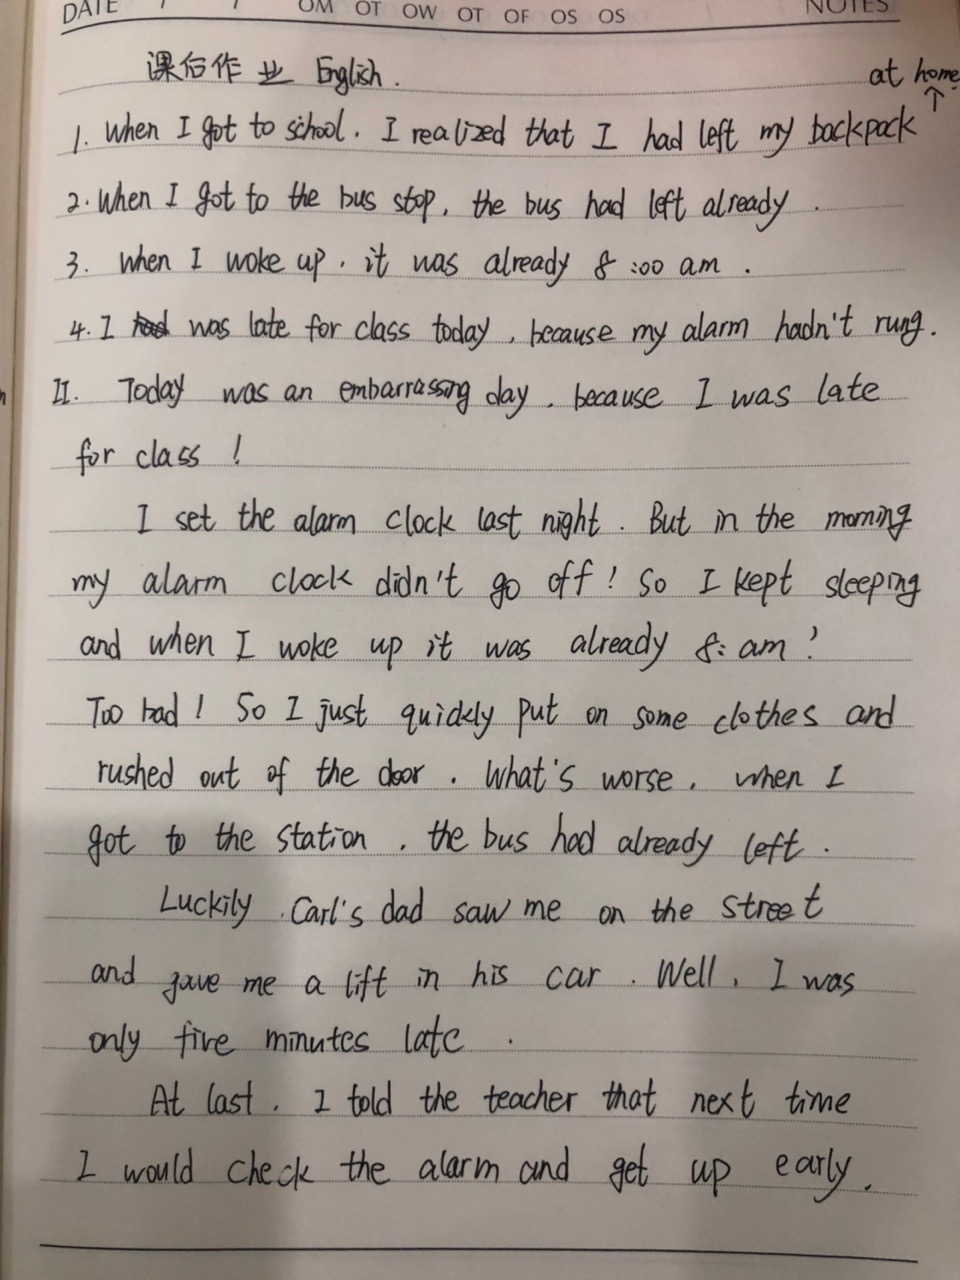 DATE / / OM OT OW OT OF OS OS NOTES
课后作业 English.
at home
↑
1. When I got to school. I realized that I had left my backpack
2. When I got to the bus stop, the bus had left already.
3. When I woke up, it was already 8:00 am.
4. I was late for class today, because my alarm hadn't rung.
II. Today was an embarrassing day, because I was late
for class!
I set the alarm clock last night. But in the morning
my alarm clock didn't go off! So I kept sleeping
and when I woke up it was already 8: am!
Too bad! So I just quickly put on some clothes and
rushed out of the door. What's worse, when I
got to the station, the bus had already left.
Luckily, Carl's dad saw me on the street
and gave me a lift in his car. Well, I was
only five minutes late.
At last, I told the teacher that next time
I would check the alarm and get up early.